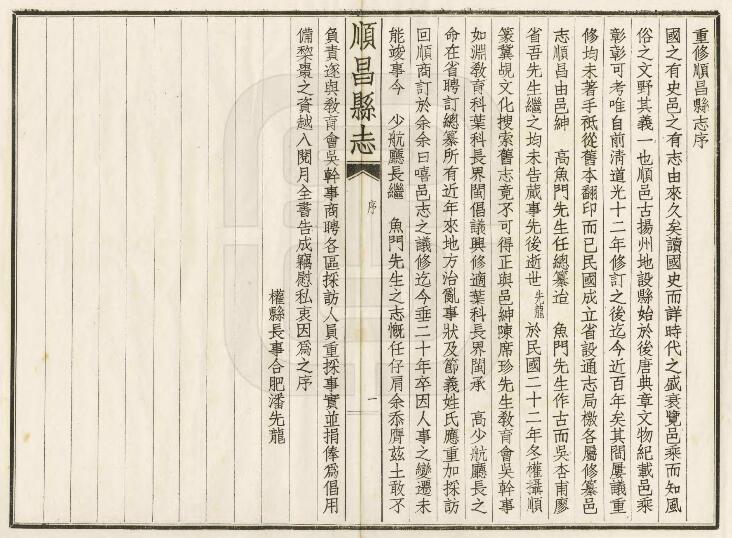 重修順昌縣志序
國之有史邑之有志由來久矣讀國史而詳時代之盛衰覽邑乘而知風
俗之文野其義一也順邑古揚州地設縣始於後唐典章文物紀載邑乘
彰彰可考唯自前淸道光十二年修訂之後迄今近百年矣其間屢議重
修均未著手祇從舊本翻印而已民國成立省設通志局檄各屬修纂邑
志順昌由邑紳　高魚門先生任總纂迨　魚門先生作古而吳杏甫廖
省吾先生繼之均未告蕆事先後逝世先龍於民國二十二年冬權攝順
篆冀覘文化搜索舊志竟不可得正與邑紳陳席珍先生敎育會吳幹事
如淵敎育科葉科長界閩倡議興修適葉科長界閩承　高少航廳長之
命在省聘訂總纂所有近年來地方治亂事狀及節義姓氏應重加採訪
回順商訂於余余曰嘻邑志之議修迄今垂二十年卒因人事之變遷未
能竣事今　少航廳長繼　魚門先生之志慨任仔肩余忝膺茲土敢不
順昌縣志　序　一
負責遂與敎育會吳幹事商聘各區採訪人員重採事實並捐俸爲倡用
備棃棗之資越入閱月全書告成竊慰私衷因爲之序
權縣長事合肥潘先龍